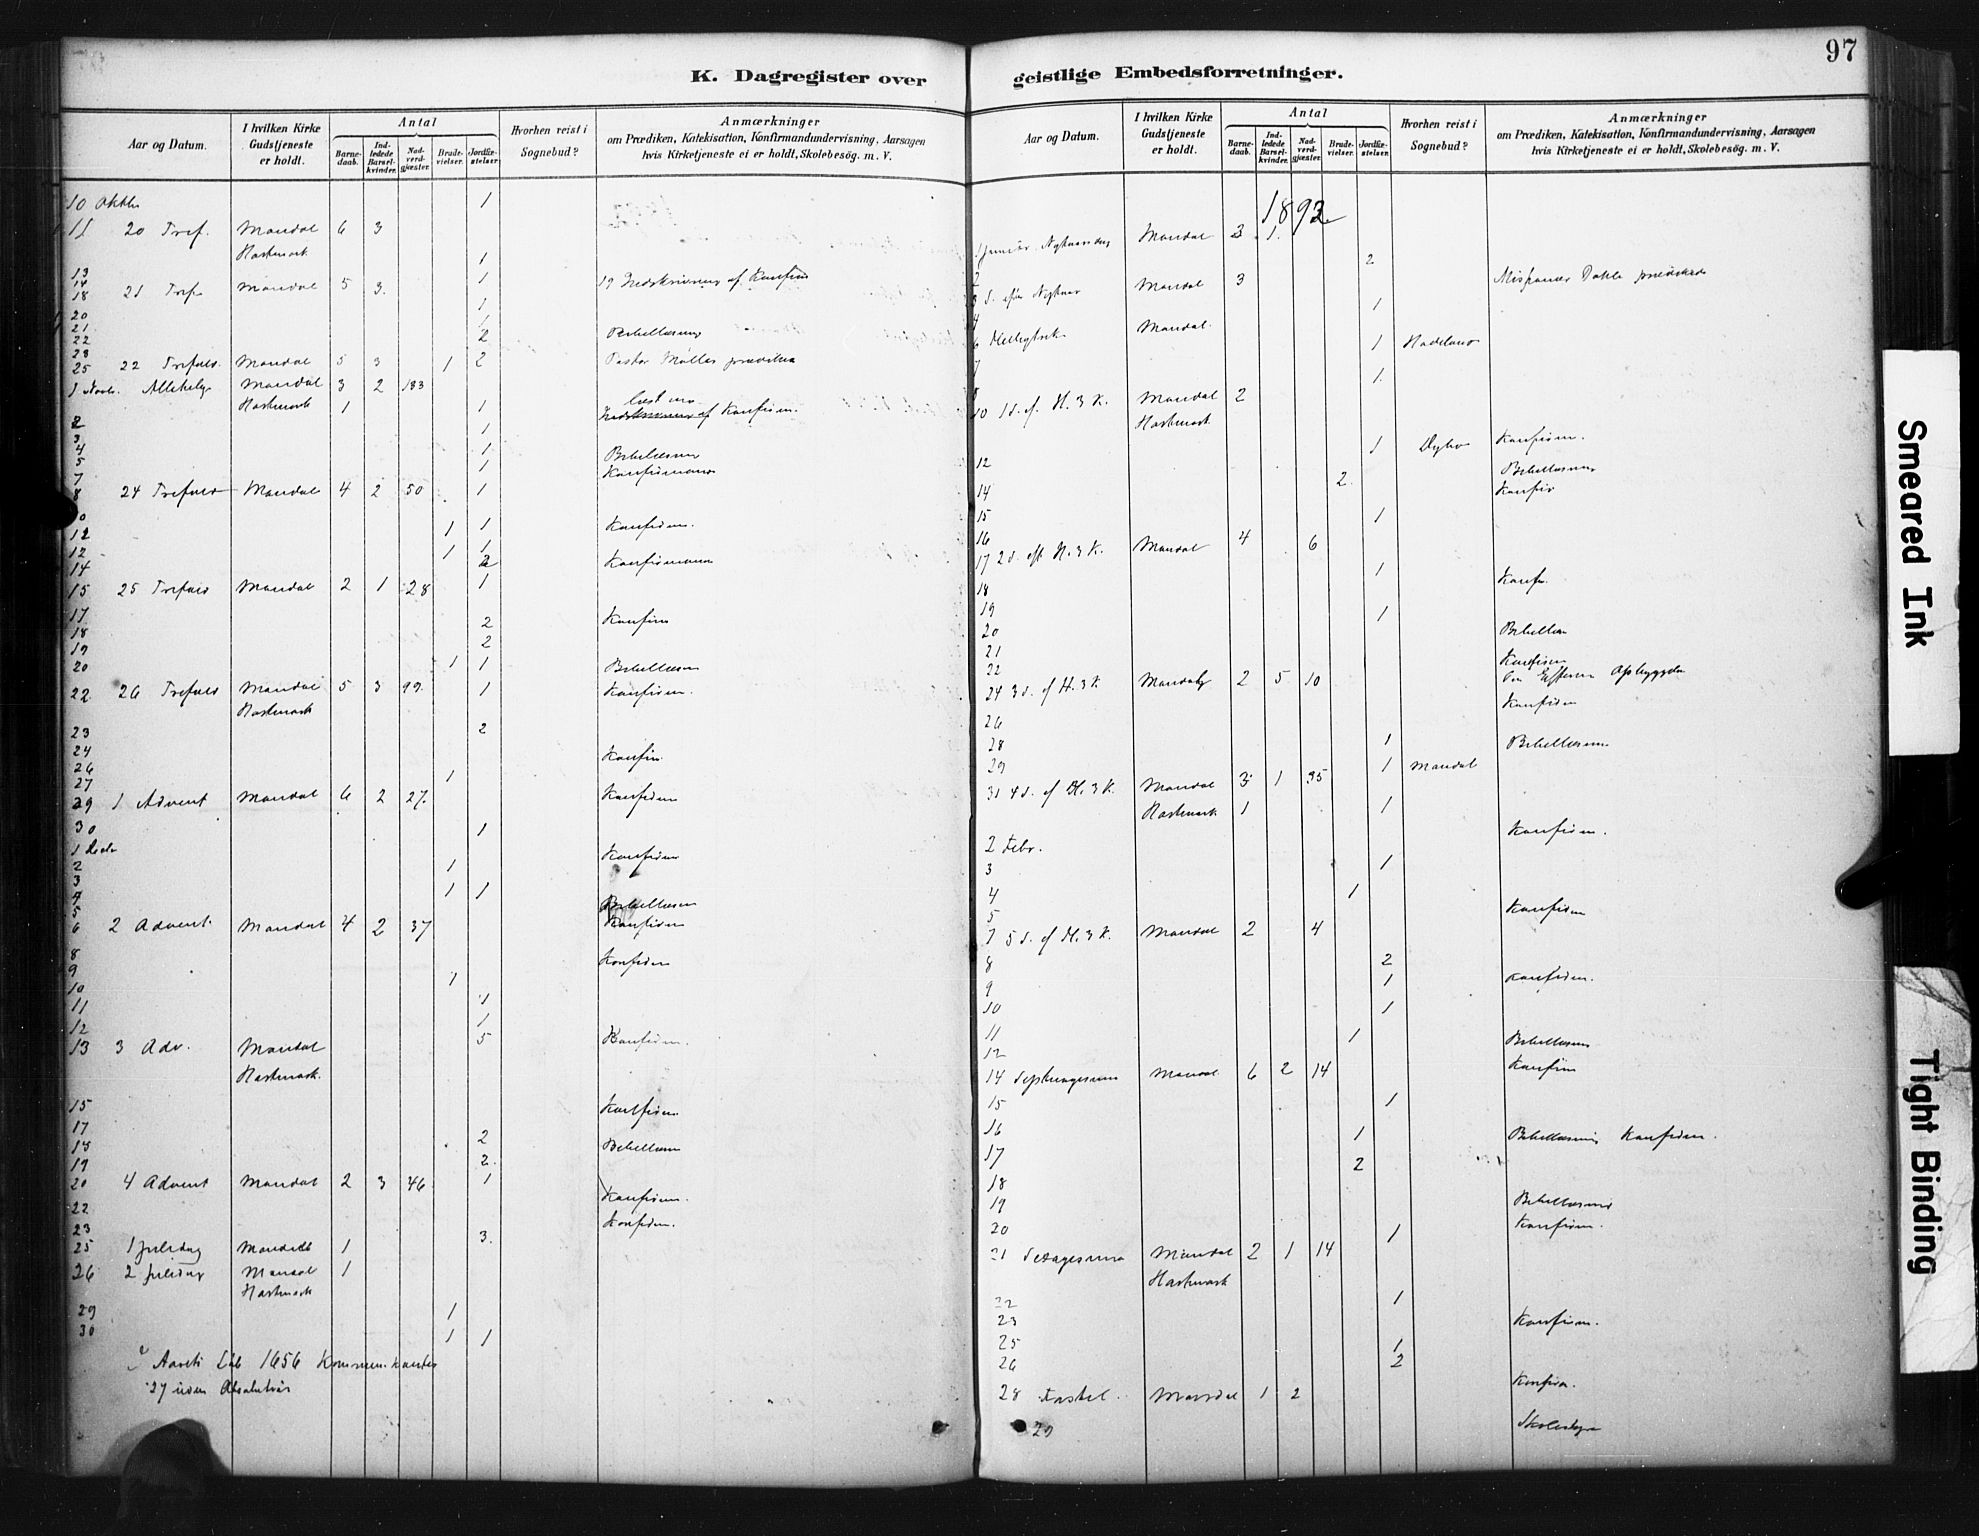 97
K. Dagregister over geistlige Embedsforretninger.
Aar og Datum.
I hvilken Kirke Gudstjeneste er holdt.
Antal
Barnedaab.
Indledede Barselkvinder.
Nadverdgjæster.
Brudevielser.
Jordfæstelser.
Hvorhen reist i Sognebud?
Anmærkninger
om Prædiken, Katekisation, Konfirmandundervisning, Aarsagen
hvis Kirketjeneste ei er holdt, Skolebesøg. m. V.
10 Oktbr 1
11 20 Tref. Mandal 6 3
Hartmark
13 1
14 1
18 21 Tref Mandal 5 3. 19 af Konfirm
20 1
21 1
22 2 Bibellæsning
23
25 22 Trefold. Mandal 5 3 1 2 Pastor Møller prædiken
1 Novb. Allehelg Mandal 3 2 183
Hartmark 1 1 læst m Konfirm.
2
3 1
4 1 Bibellæsn
5 1 Konfirmand
7
8 24 Trefold Mandal 4 2 50 1
10 1 1 Konfirm.
12
12 1 1
14 2 Konfirmand
15 25 Trefold Mandal 2 1 28 1
17 2 Konfirm
18 2
19
20 1 1 Bibellæsn
22 26 Trefold Mandal 5 3 99. 1 Konfirm.
Hartmark
23 2
24 Konfirm
26 1
27
29 1 Advent Mandal 6 2 27. Konfirm
30 1
1 Decbr
2 1 Konfirm
3
4 1 1
5 Bibellæsn
6 2 Advent Mandal 4 2 37 Konfirm
8 Konfirm
9 1
10
11 1
12 1
13 3 Adv. Mandal 5 Konfirm.
Hartmark.
15 Konfirm.
17 2
18 Bibellæsn
19 2.
20 4 Advent Mandal 2 3 46 1
22 Konfirm.
23 3. Konfirm.
25 1 Juledag Mandal 1
26 2 Juledag Mandal 1
Hartmark
29 1
30 1 1
I Aarets Løb 1656 Kommunikanter
27 uden Absolution
Aar og Datum.
I hvilken Kirke Gudstjeneste er holdt.
Antal
Barnedaab.
Indledede Barselkvinder.
Nadverdgjæster.
Brudevielser.
Jordfæstelser.
Hvorhen reist i Sognebud?
Anmærkninger
om Prædiken, Katekisation, Konfirmandundervisning, Aarsagen
hvis Kirketjeneste ei er holdt, Skolebesøg. m. V.
1892
1 Januar Nytaarsdag Mandal 3 1.
2 2
3 S. efter Nytaar Mandal 3 Missionær Dahle prædikede
4 1
6 Helligtrek Mandal.
7 1
8 1.
10 1 S. ef. H. 3 K. Mandal 2
Hartmark
12 1 Konfirm.
14 2. Bibellæsning
15 1 Konfir
16
17 2 S. eft H. 3 K. Mandal 4 6
18 1 Konf.
19 1
20 Bibellæs
21
22 Konfirm
24 3 S. ef H. 3 K Mandal 2 5 10
26 Konfirm
28 1 Bibellæsn
29 1 Mandal
31 4 S. ef H. 3 K. Mandal 3 1 35
Hartmark 1 1
2 Febr. Konfirm.
3 1
4 1
5 Konfirm
7 5 S. ef H. 3 K. Mandal 2 4
8 2
9 1 Konfirm.
10 1
11 1
12 Bibellæsn
14 Septuagesima Mandal 6 2 14 Konfirm
15 1
16 1 Bibellæsning Konfirm.
17 2
18
19 Bibellæsning
20 1 Konfirm.
21 Sexagesima Mandal 2 1 14
Hartmark
22 1
23 Konfirm.
25 1
26 2
28 Fastel. Mandal 1 2 Konfirm.
29
Smeared Ink
Tight Binding